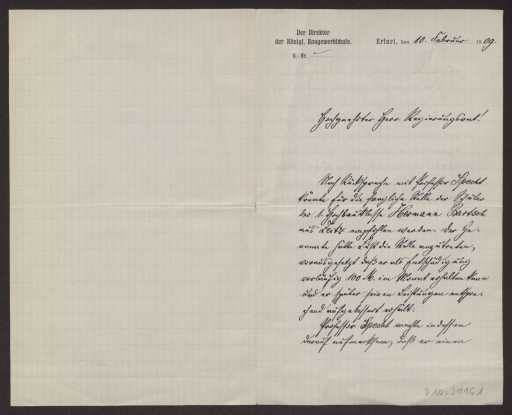 Der Direktor
der Königl. Baugewerkschule. Erfurt, den 10. Februar 1909.
J.-Nr.
Hochgeehrter Herr Regierungsrat!
Nach Rücksprache mit Professor Specht
könnte für die fragliche Stelle der Schüler
der 1. Hochbauklasse Hermann Bartsch
aus Zeitz empfohlen werden. Der Ge-
nannte hätte Lust die Stelle anzutreten,
vorausgesetzt daß er als Entschädigung
vorläufig 100 M. im Monat erhalten kann
und er später seinen Leistungen entspre-
chend aufgebessert erhält.
Professor Specht machte indessen
darauf aufmerksam, daß er einen